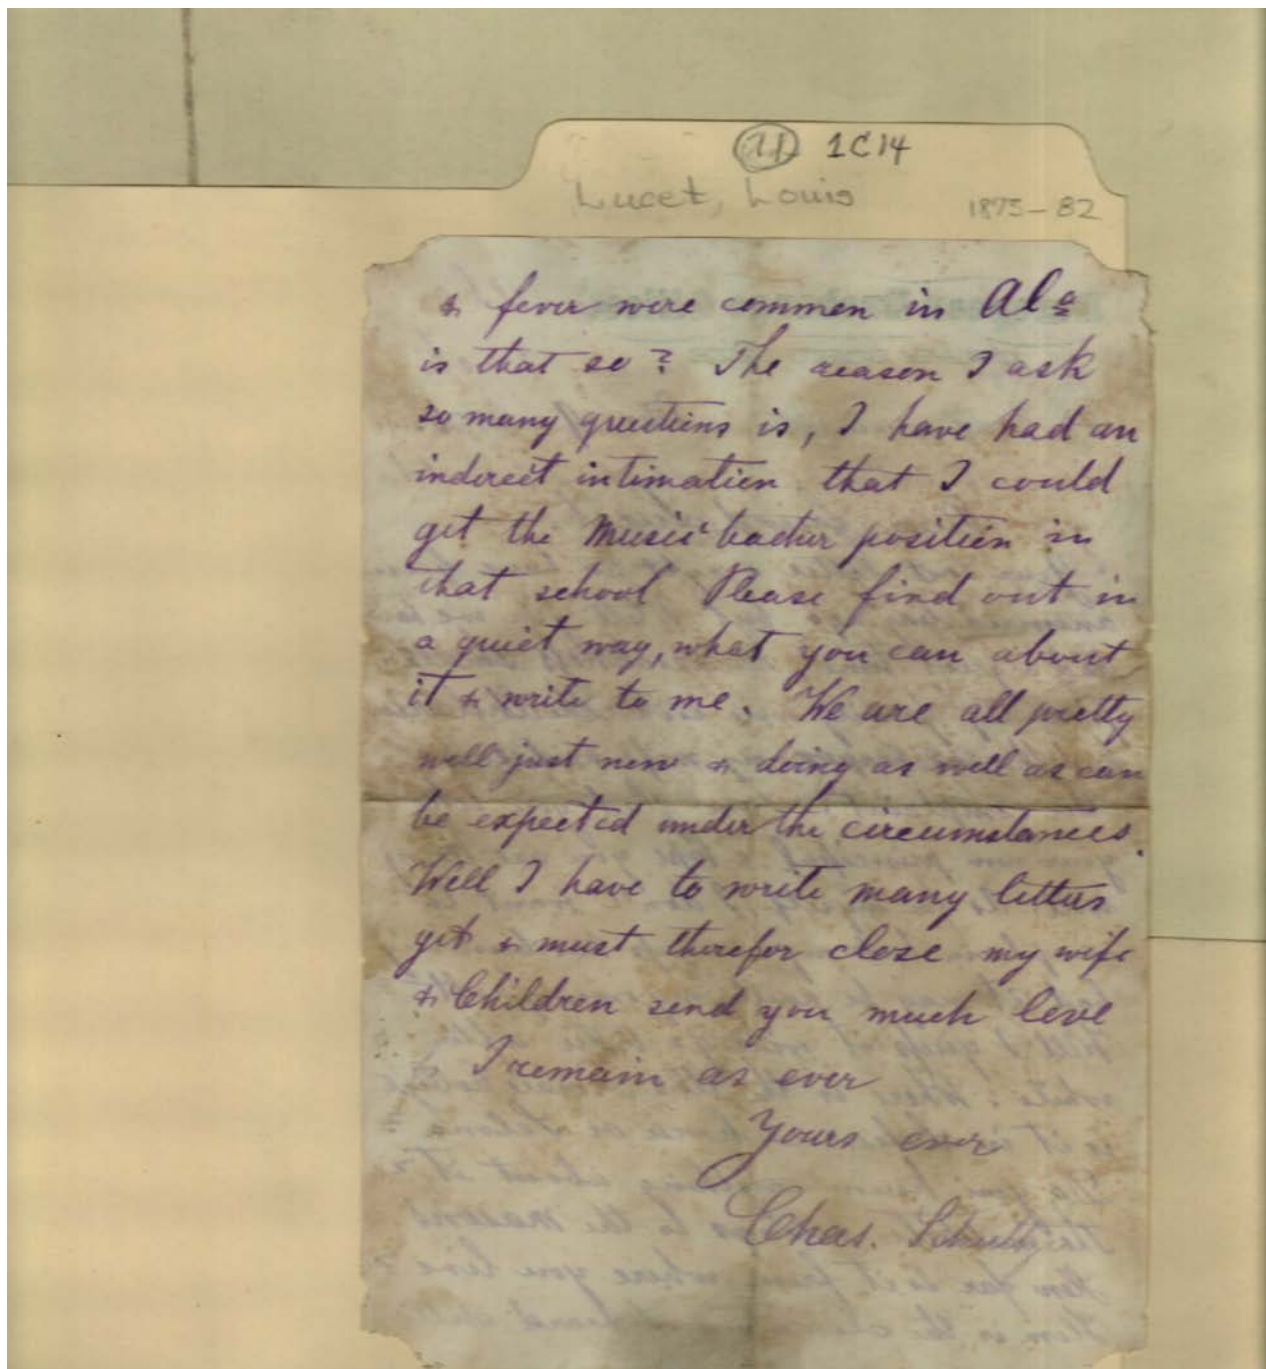 21 1C14
Lucet, Louis
1875-82
& fever were common in Ala
is that so? The reason I ask
so many questions is, I have had an
indirect intimation that I could
get the Music teacher position in
that school Please find out in
a quiet way, what you can about
it & write to me. We are all pretty
well just now & doing as well as can
be expected under the circumstances.
Well I have to write many letters
yet & must therefor close my wife
& Children send you much love
I remain as ever
Yours ever
Chas.